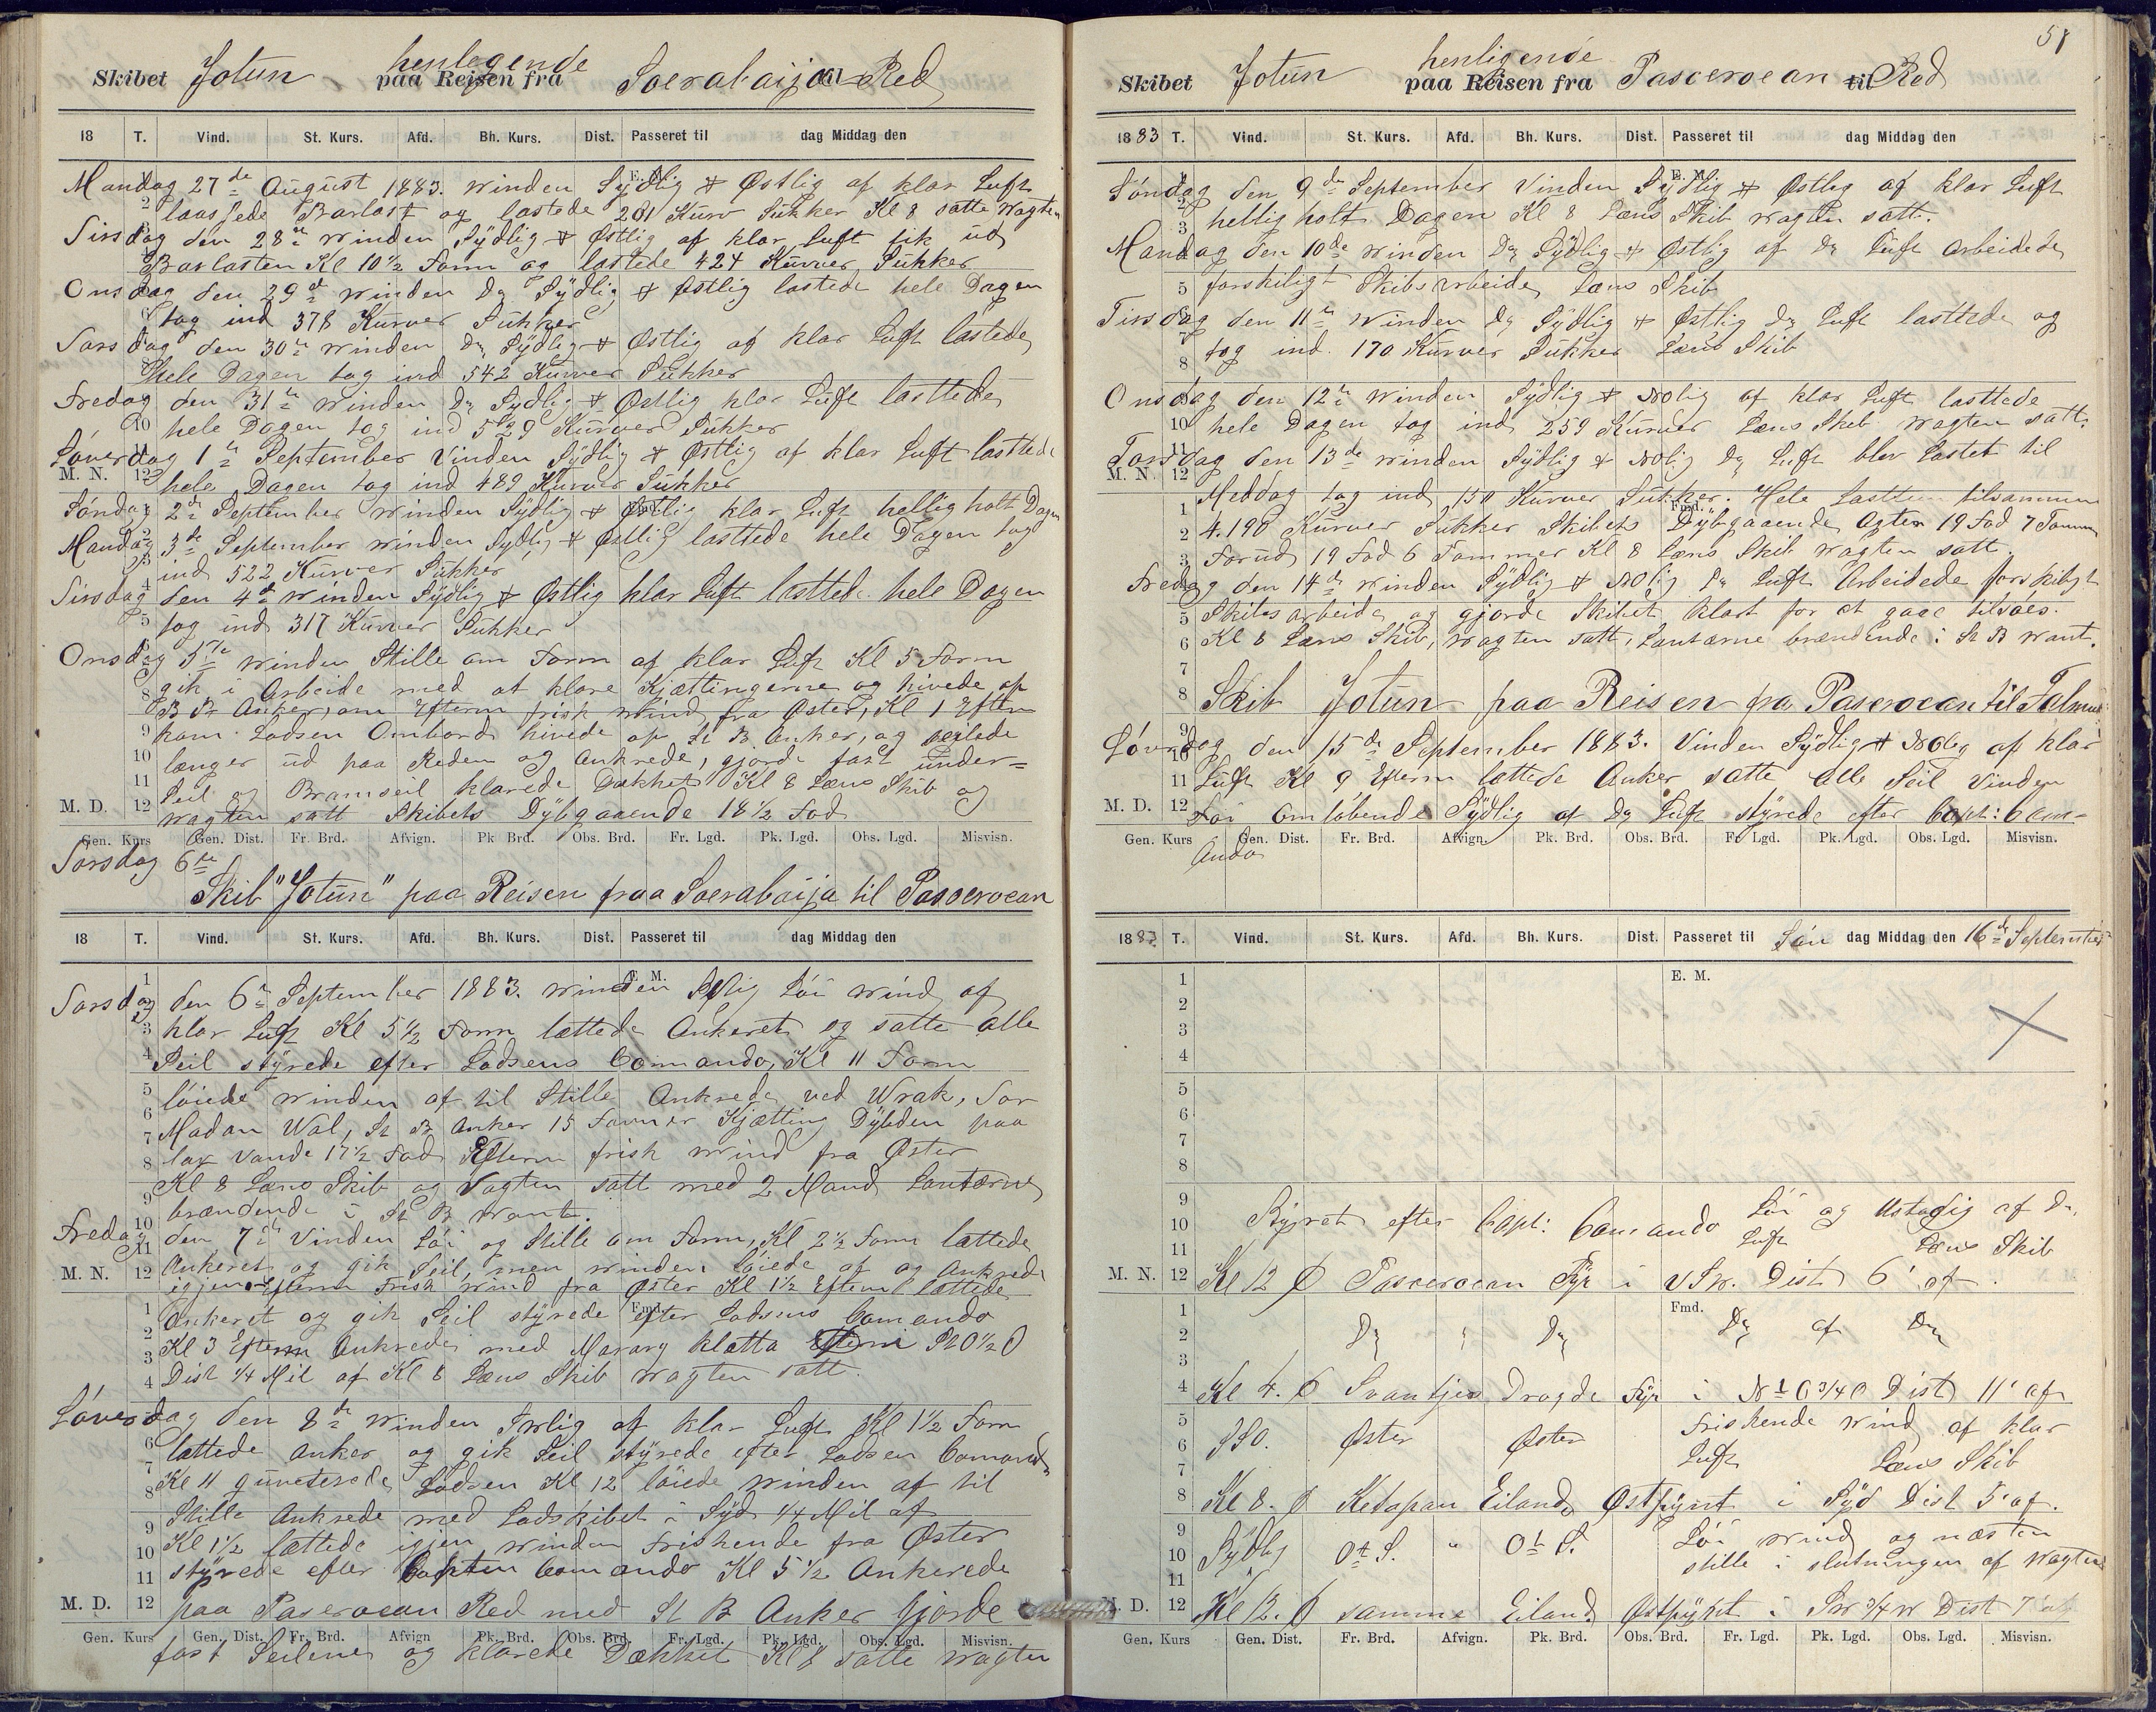 Skibet Jotun henlegende paa Reisen fra Soerabaija til Red
18 T. Vind. St. Kurs. Afd. Bh. Kurs. Dist. Passeret til dag Middag den
E. M.
Mandag 27de August 1883. Winden Sydlig & Østlig af klar Luft
laassede Barlast og lastede 281 Kurv Sukker Kl 8 satte Wagten
Tirsdag den 28de Winden Sydlig & Østlig af klar Luft fik ud
Barlasten Kl 10½ Form og lastede 424 Kurver Sukker
Onsdag den 29de Winden Do Sydlig & Østlig lastede hele Dagen
tog ind 378 Kurver Sukker
Torsdag den 30te Winden Do Sydlig & Østlig af klar Luft lastede
hele Dagen tog ind 542 Kurver Sukker
Fredag den 31te Winden Do Sydlig & Østlig klar Luft lasttede
hele Dagen tog ind 529 Kurver Sukker
Løverdag 1te September Vinden Sydlig & Østlig af klar Luft lasttede
M. N. hele Dagen tog ind 489 Kurver Sukker
Søndag 2de September Winden Sydlig & Østlig klar Luft hellig holt Dagen
Mandag 3de September Winden Sydlig & Østlig lasttede hele Dagen tog
ind 522 Kurver Sukker
Tirsdag den 4de Winden Sydlig & Østlig klar Luft lasttede hele Dagen
tog ind 317 Kurver Sukker
Onsdag 5te Winden Stille om Form af klar Luft Kl 5 Form
gik i Arbeide med at klare Kjættingerne og hivede op
B B Anker, om Efterm frisk Wind fra Øster, Kl 1 Efterm
kom Lodsen Ombord hivede op St B Anker, og seilede
længer ud paa Reden og Ankrede, gjorde fast under=
Seil og Bramseil klarede Dækket Kl 8 Læns Skib og
M. D. Wagten satt Skibets Dybgaaende 18½ Fod
Gen. Kurs Gen. Dist. Fr. Brd. Afvign. Pk Brd. Obs. Brd. Fr. Lgd. Pk. Lgd. Obs. Lgd. Misvisn.
Torsdag 6te
Skib "Jotun" paa Reisen fraa Soerabaija til Pasoeroean
18 T. Vind. St. Kurs. Afd. Bh. Kurs. Dist. Passeret til dag Middag den
E. M.
Torsdag den 6te September 1883. Winden Løi Wind af
klar Luft Kl 5½ Form lættede Ankeret og satte alle
Seil styrede efter Lodsens Comando, Kl 11 Form
løiede Winden af til Stille Ankrede ved Wrak, Tor
Madan Wal, St B Anker 15 Favner Kjætting Dybden paa
lav Vande 17½ Fod Efterm frisk Wind fra Øster
Kl 8 Læns Skib og Vagten satt med 2 Mand Lantærne
brændende i St B Want.
Fredag den 7de Vinden Løi og Stille om Form, Kl 2½ Form lættede
M. N. Ankeret og gik Seil, men Winden løiede af og Ankrede
igjen Efterm Frisk Wind fra Øster Kl 1½ Efterm lættede
Fmd.
Ankeret og gik Seil styrede efter Lodsens Comando
Kl 3 Efterm Ankrede med
Dist ¼ Mil af Kl 8 Læns Skib Wagten satt.
Løverdag den 8de Winden af klar Luft Kl 1½ Form
lættede Anker og gik Seil styrede efter Lodsen Comando
Kl 11 Lodsen Kl 12 løiede Winden af til
Stille Ankrede med Lodskibet i Syd ¼ Mil af
Kl 1½ lættede igjen Winden Friskende fra Øster
styrede efter Capten Comando Kl 5½ Ankerede
M. D. paa Paseroean Red med St B Anker Gjorde
Gen. Kurs Gen. Dist. Fr. Brd. Afvign Pk. Brd. Obs. Brd. Fr. Lgd. Pk. Lgd. Obs. Lgd. Misvisn.
fast Seilene og klarede Dækket Kl 8 satte Wagten
51
Skibet Jotun henligende paa Reisen fra Pasceroean til Red
1883 T. Vind. St. Kurs. Afd. Bh. Kurs. Dist. Passeret til dag Middag den
E. M.
Søndag den 9de September Vinden Sydlig & Østlig af klar Luft
hellig holt Dagen Kl 8 Læns Skib Wagten satt.
Mandag den 10de Winden Do Sydlig & Østlig af Do Luft Arbeidede
forskiligt Skibsarbeide Læns Skib
Tirsdag den 11te Winden Do Sydlig & Østlig Do Luft lasttede og
tog ind. 170 Kurver Sukker Læns Skib
Onsdag den 12te Winden Sydlig & NOlig af klar Luft lasttede
hele Dagen tog ind 259 Kurver Læns Skib Wagten satt.
Torsdag den 13de Winden Sydlig & NOlig Do Luft blev lastet til
M. N.
Meddag tog ind 150 Kurver Sukker. Hele Lastten tilsammen
Fmd.
4.190 Kurver Sukker Skibets Dybgaaende Agter 19 Fod 7 Tommer
Forud 19 Fod 6 Tommer Kl 8 Læns Skib Wagten satt.
Fredag den 14de Winden Sydlig & NOlig Do Luft Arbeidede forskiligt
Skibsarbeide og gjorde Skibet klart for at gaae tilsøes.
Kl 8 Læns Skib, Wagten satt, Lantærne brændende i St B Want.
Skib Jotun paa Reisen fra Paseroean til Falmut
Løverdag den 15de September 1883. Vinden Sydlig & NOlig af klar
Luft Kl 9 Efterm lættede Anker satte alle Seil Vinden
M. D. Løi Omløbende Sydlig af Do Luft styrede efter Capt: Com-
Gen. Kurs Gen. Dist. Fr. Brd. Afvign. Pk. Brd. Obs. Brd. Fr. Lgd. Pk. Lgd. Obs. Lgd. Misvisn.
ando
1883. T. Vind. St. Kurs. Afd. Bh. Kurs. Dist. Passeret til Søn dag Middag den 16de September
E. M.
Styret efter Capt: Comando Løi og Ustadig af Do.
Luft Læns Skib
M. N. Kl 12 P Pasceroean Fyr i VSW. Dist 6' af.
Fmd.
Do Do Do af Do
Kl 4. P Svantjes Drogde Fyr i Dist 11' af
SSO. Øster Øster Friskende Wind af klar
Luft Læns Skib
Kl 8. P Ketapan Eiland Østpynt i Syd Dist 5' af.
Sydlig OtS. " OtS. Løi Wind og næsten
stille i slutningen af Wagten
M. D. Kl 12. P samme Eiland Østpynt i SW ¾ W Dist 7' af
Gen. Kurs Gen. Dist. Fr. Brd. Afvign. Pk. Brd. Obs. Brd. Fr. Lgd. Pk. Lgd. Obs. Lgd. Misvisn.